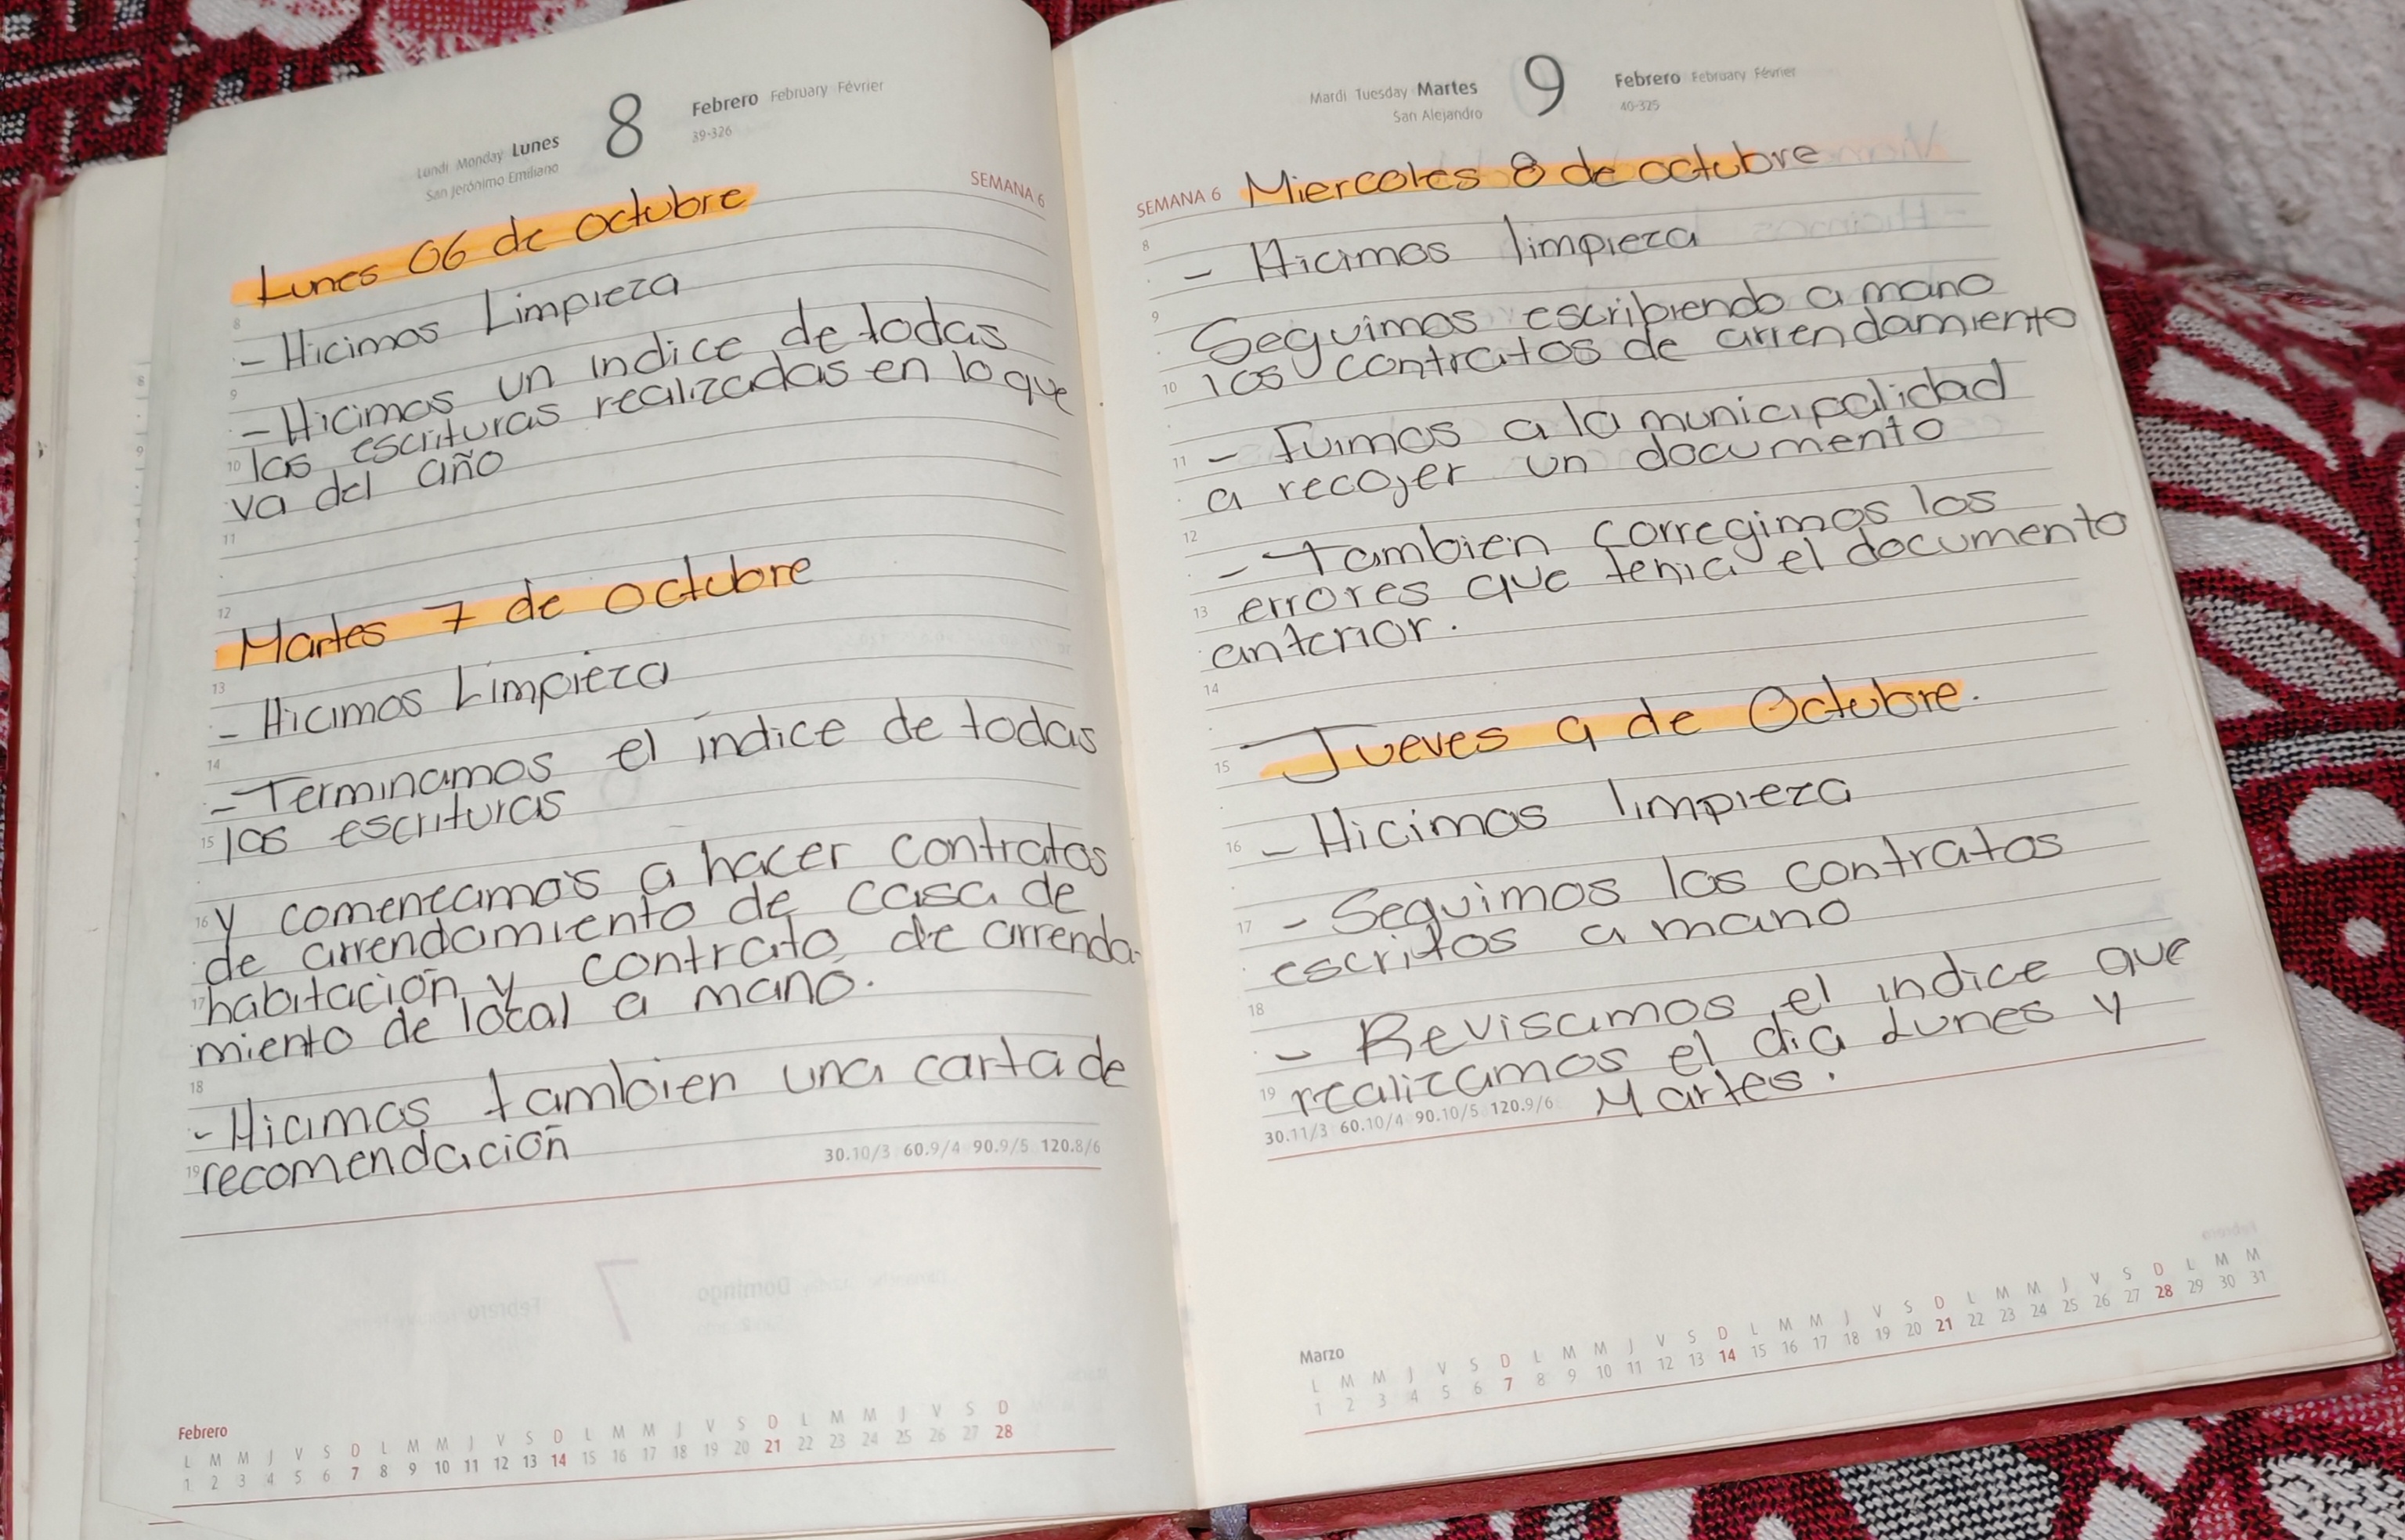 Lundi Monday Lunes 8 Febrero February Février
San Jerónimo Emiliano 39-326
SEMANA 6
Lunes 06 de octubre
8
- Hicimos Limpieza
9
- Hicimos un indice de todas
10 las escrituras realizadas en lo que
va del año
11
12
Martes 7 de octubre
13
- Hicimos Limpieza
14
- Terminamos el índice de todas
15 las escrituras
16 y comenzamos a hacer contratos
de arrendamiento de casa de
17 habitación y contrato de arrenda-
miento de local a mano.
18
- Hicimos tambien una carta de
19 recomendación
30.10/3 60.9/4 90.9/5 120.8/6
Febrero
L M M J V S D L M M J V S D L M M J V S D L M M J V S D
1 2 3 4 5 6 7 8 9 10 11 12 13 14 15 16 17 18 19 20 21 22 23 24 25 26 27 28
Mardi Tuesday Martes 9 Febrero February Février
San Alejandro 40-325
SEMANA 6 Miercoles 8 de octubre
8
- Hicimos limpieza
9
Seguimos escribiendo a mano
10 los contratos de arrendamiento
11 - Fuimos a la municipalidad
a recojer un documento
12
- Tambien corregimos los
13 errores que tenia el documento
anterior.
14
Jueves 9 de Octubre.
15
16 - Hicimos limpieza
17 - Seguimos los contratos
escritos a mano
18
- Revisamos el indice que
19 realizamos el dia Lunes y
Martes.
30.11/3 60.10/4 90.10/5 120.9/6
Marzo
L M M J V S D L M M J V S D L M M J V S D L M M J V S D L M M
1 2 3 4 5 6 7 8 9 10 11 12 13 14 15 16 17 18 19 20 21 22 23 24 25 26 27 28 29 30 31